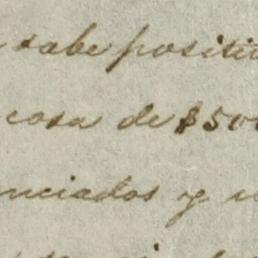 sabe positiv
cosa de $500
nciados y u